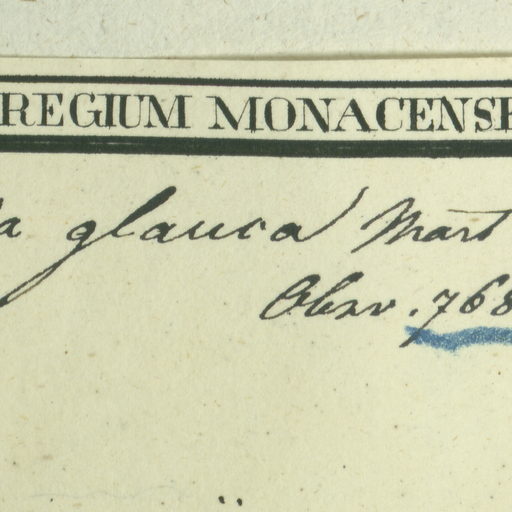 REGIUM MONACENSE
a glauca Mart
Obsv. 768